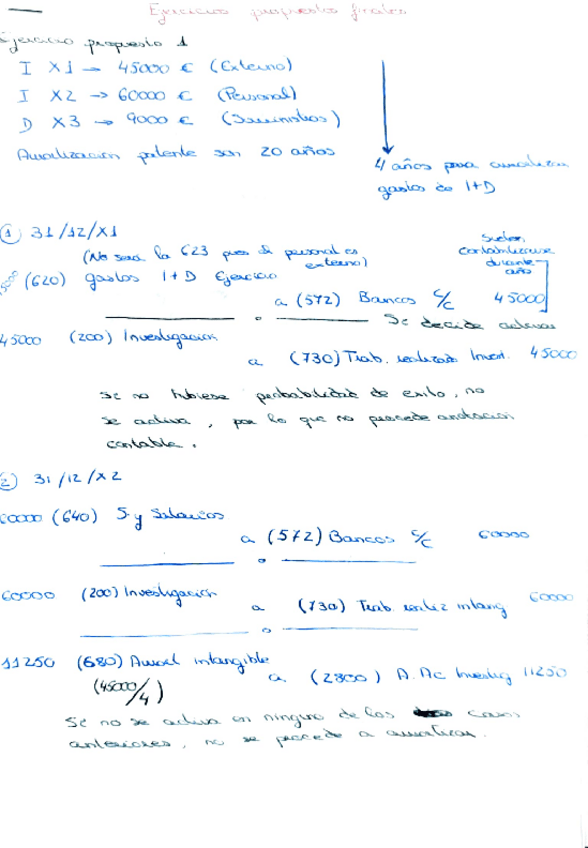 Ejercicios propuestos finales
Ejercicio propuesto 1
I X1 → 45000 € (Externo)
I X2 → 60000 € (Personal)
D X3 → 9000 € (Suministros)
Amortización patente son 20 años
4 años para amortizar
gastos de I+D
1 31/12/X1
(No sería la 623 pues el personal es
externo)
Suelen
contabilizarse
durante
año
(620) gastos I+D Ejercicio
a (572) Bancos c/c 45000
Se decide activar
45000 (200) Investigación
a (730) Trab. realizado Invest. 45000
Si no hubiese probabilidad de exito, no
se activa, por lo que no procede anotación
contable.
2 31/12/X2
60000 (640) S y Salarios
a (572) Bancos c/c 60000
60000 (200) Investigación
a (730) Trab. realiz intang 60000
11250 (680) Amort intangible
a (2800) A. Ac Investig 11250
(45000/4)
Si no se activa en ninguno de los casos
anteriores, no se procede a amortizar.